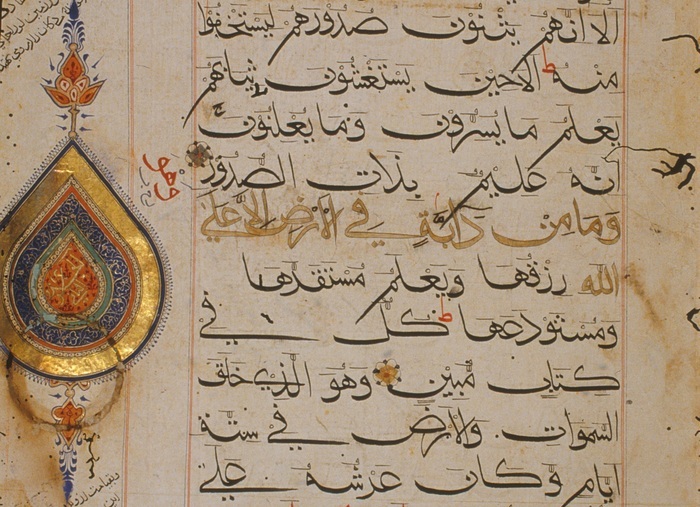 الا انهم يثنون صدورهم ليستخفوا
منه الاحين يستغشون ثيابهم
يعلم ما يسرون وما يعلنون
انه عليم بذات الصدور
وما من دابة في الارض الا على
الله رزقها ويعلم مستقرها
ومستودعها كل في
كتاب مبين وهو الذي خلق
السموات والارض في ستة
ايام وكان عرشه على